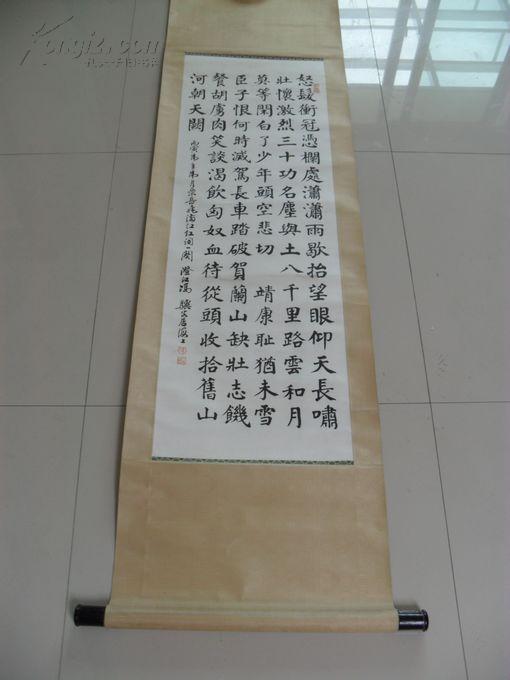 怒髮衝冠憑欄處瀟瀟雨歇抬望眼仰天長嘯
壯懷激烈三十功名塵與土八千里路雲和月
莫等閑白了少年頭空悲切 靖康耻猶未雪
臣子恨何時滅駕長車踏破賀蘭山缺壯志饑
餐胡虜肉笑談渴飲匈奴血待從頭收拾舊山
河朝天闕
丙寅 月录岳飛滿江红词一阕 澄江馮
Kongfz.com
孔夫子旧书网